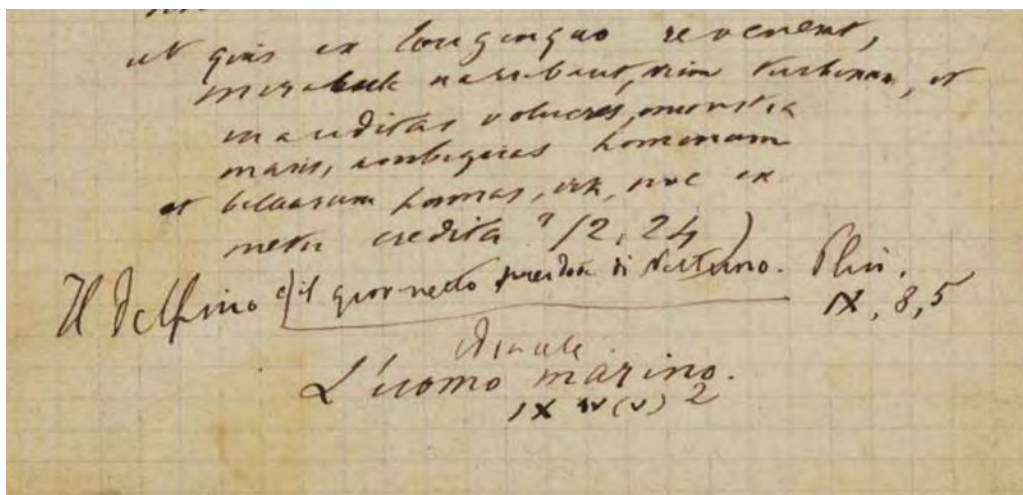 ut quis ex longinquo revenerat,
miracula narrabant, vim turbinum, et
inauditas volucres, monstra
maris, ambiguas hominum
et beluarum formas, visa, sive ex
metu credita ? /2, 24)
Il delfino e il giovinetto di Nettuno. Plin.
IX, 8, 5
L'uomo marino.
IX IV (V) 2